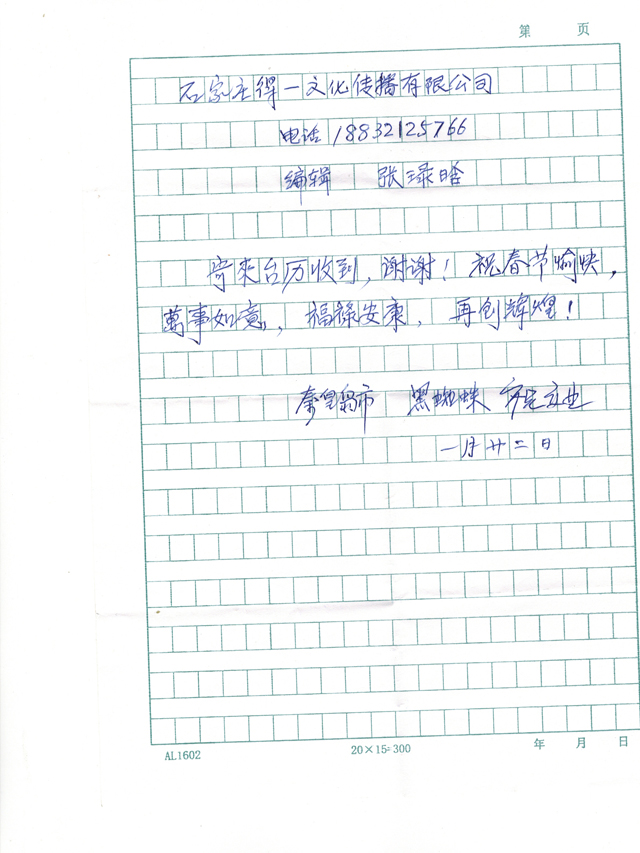 第 页
石家庄得一文化传播有限公司
电话 18832125766
编辑 张渌晗
寄来台历收到，谢谢！祝春节愉快，
萬事如意，福祿安康，再创辉煌！
秦皇岛市 黑蜘蛛
一月廿二日
AL1602 20×15=300 年 月 日